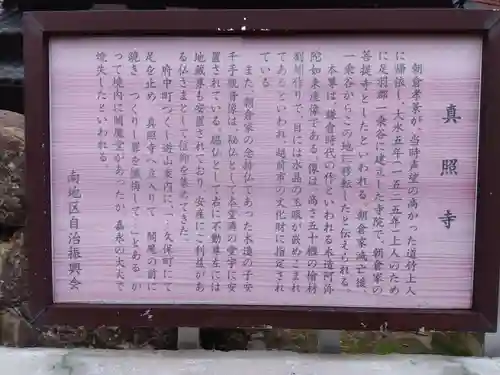 真照寺
朝倉孝景が、当時声望の高かった道竹上人
に帰依し、大永五年(一五二五年)上人のため
に足羽郡一乗谷に建立した寺院で、朝倉家の
菩提寺としたといわれる。朝倉家滅亡後、
一乗谷からこの地に移転したと伝えられる。
本尊は、鎌倉時代の作といわれる木造阿弥
陀如来座像である。像は、高さ五十糎の檜材
割矧作りで、目には水晶の玉眼が嵌めこまれ
てあるといわれ、越前市の文化財に指定され
ている。
また、朝倉家の念持仏であった木造の子安
千手観音像は、秘仏として本堂横の堂宇に安
置されている。脇仏として右に不動尊左には
地蔵尊も安置されており、安産にご利益があ
る仏さまとして信仰を集めてきた。
府中町づくし遊山案内に、「…久保町にて
足を止め 真照寺へ立入りて 閻魔の前に
跪き つくりし罪を懺悔して…」とあるが
かつて境内に閻魔堂があったが、嘉永の大火で
焼失したといわれる。
南地区自治振興会